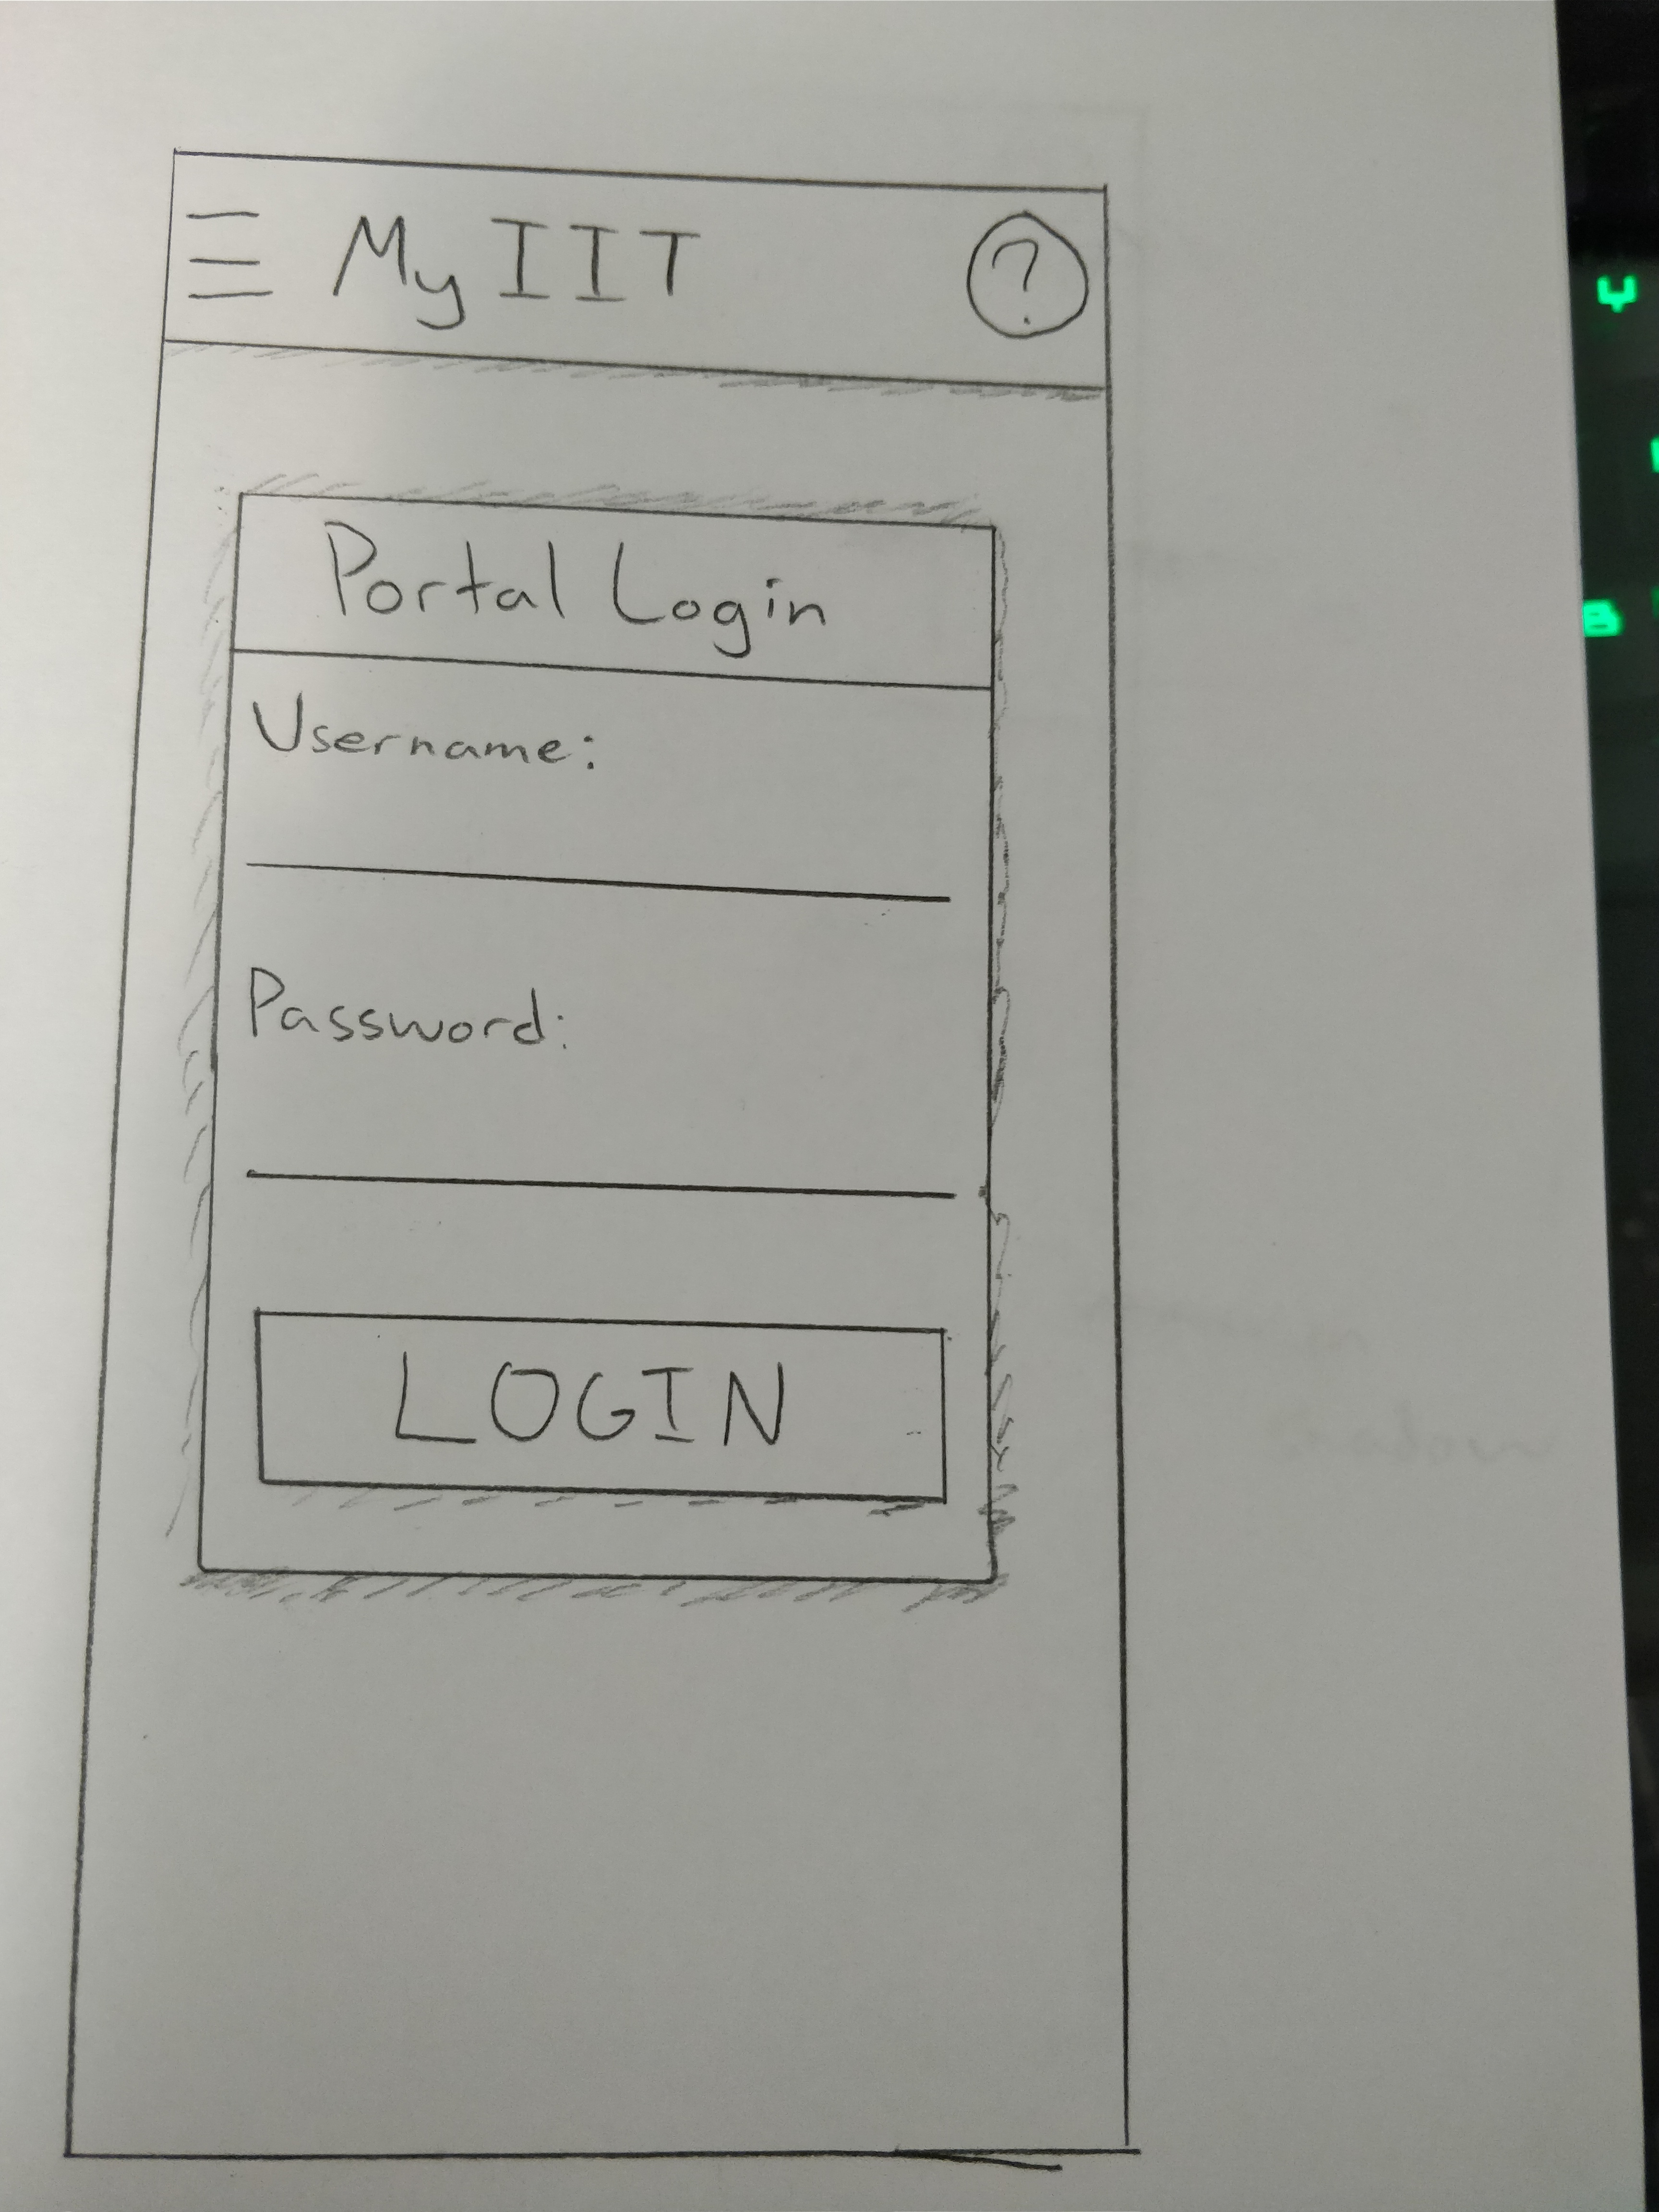 My IIT ?
Portal Login
Username:
Password:
LOGIN
Y
B